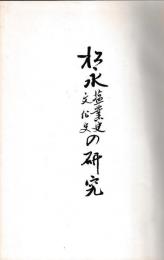 松永塩業史の研究
文化史